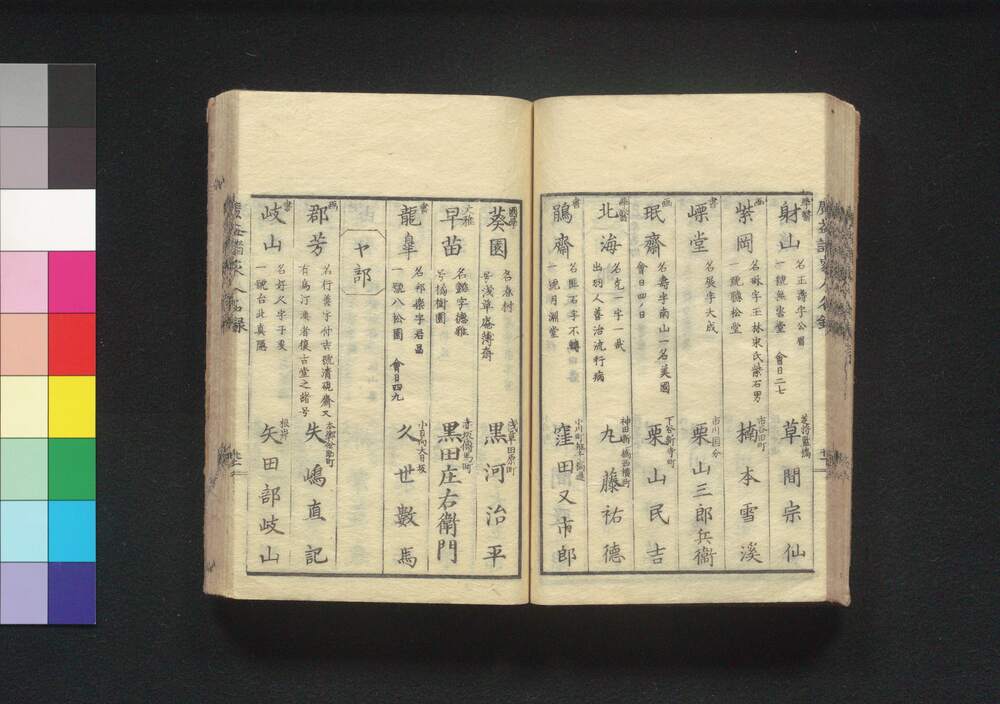 射山 名正壽字公眉 一號無害堂 會日二七 草間宗仙
画 紫岡 名 字玉林宋氏紫石男 一號聽松堂 市谷田町 楠本雪溪
書 嶧堂 名展字大成 市川国分 栗山三郎兵衞
画 珉齋 名壽字南山一名美國 會日四ノ日 下谷新寺町 栗山民吉
北海 名克一字一哉 出羽人善治流行病 神田新橋西横町 九藤祐德
書 鵑齋 名匪石字不轉 一號月湖堂 小川町 窪田又市郎
國學 葵園 名春村 号浅草庵薄齋 浅草田原町 黒河治平
早苗 名 字德雅 号橘樹園 赤坂傳馬町 黒田庄右衛門
書 龍皐 名 字君昌 一號八松園 會日四九 小日向大日坂 久世數馬
ヤ部
画 郡芳 名行善字仲吉號清硯齋又 有烏汀漁者復古堂之諸号 失嶋直記
書 岐山 名好尺字子 一號台北真隠 根岸 矢田部岐山